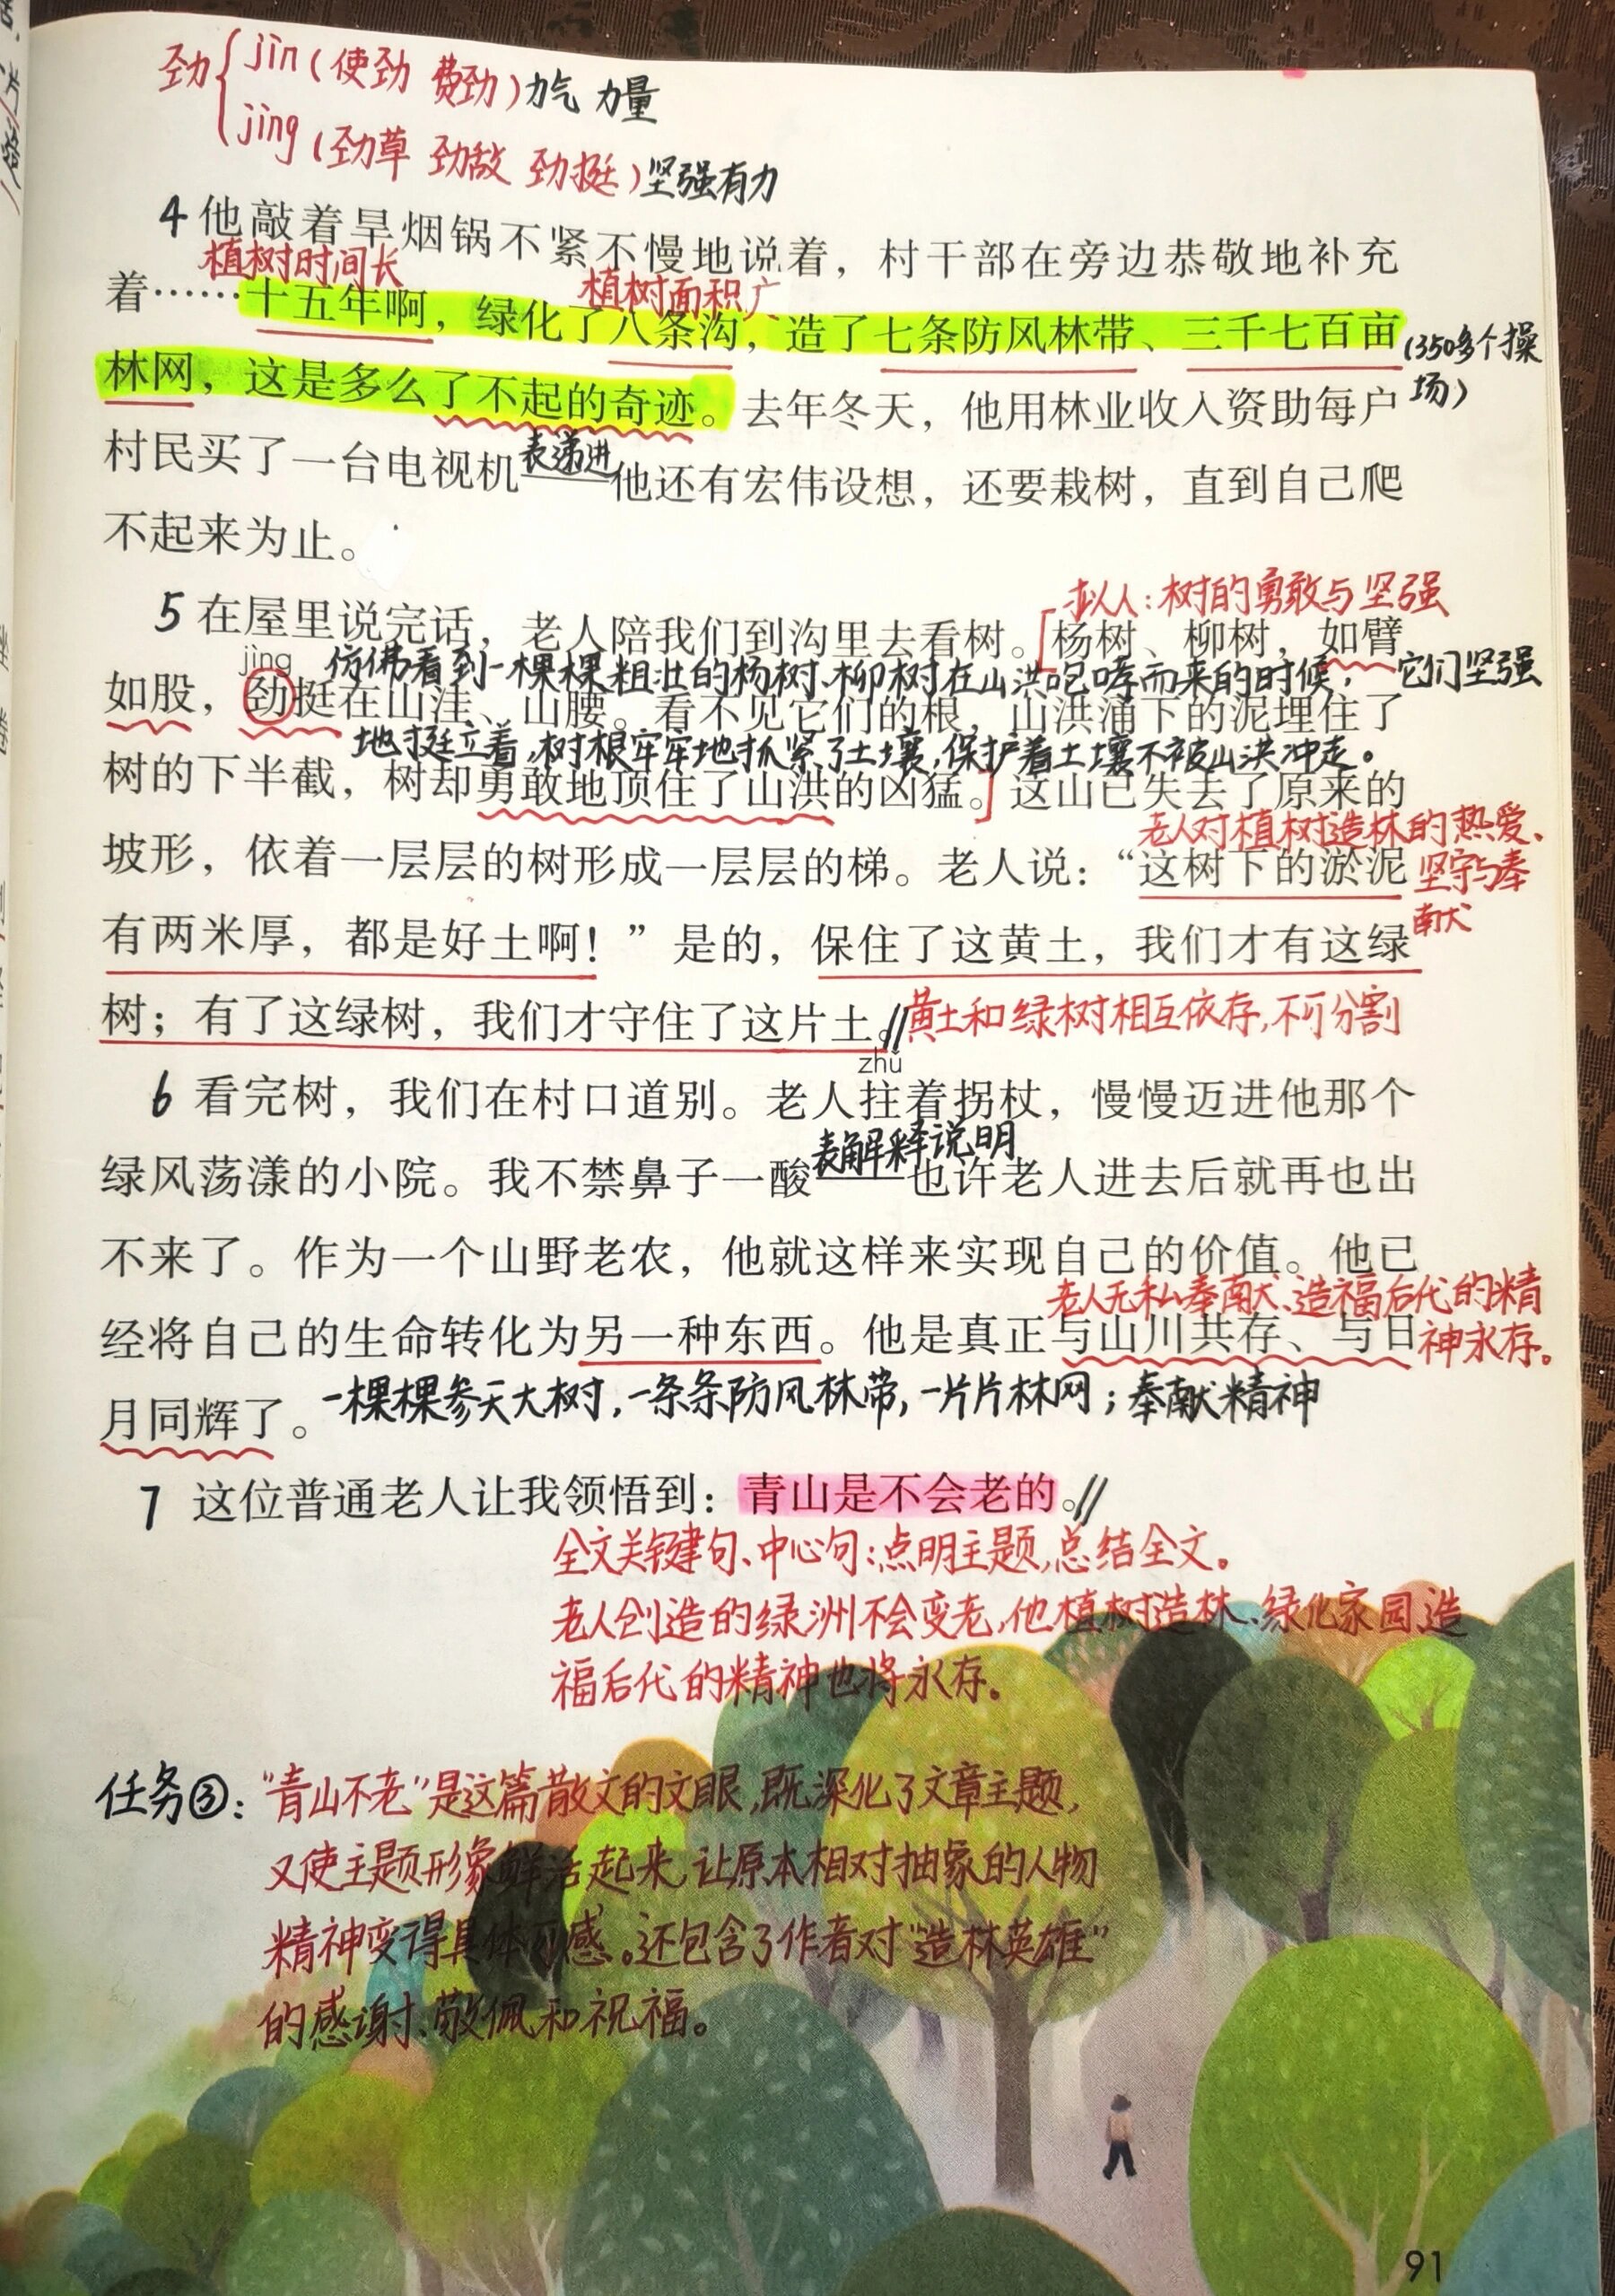 劲{jìn(使劲 费劲)力气 力量
jìng(劲草 劲敌 劲挺)坚强有力
4 他敲着旱烟锅不紧不慢地说着，村干部在旁边恭敬地补充
植树时间长 植树面积广
着……十五年啊，绿化了八条沟，造了七条防风林带、三千七百亩
(350多个操
场)
林网，这是多么了不起的奇迹。去年冬天，他用林业收入资助每户
表递进
村民买了一台电视机——他还有宏伟设想，还要栽树，直到自己爬
不起来为止。
拟人：树的勇敢与坚强
5 在屋里说完话，老人陪我们到沟里去看树。[杨树、柳树，如臂
jìng
仿佛看到一棵棵粗壮的杨树、柳树在山洪咆哮而来的时候，它们坚强
如股，劲挺在山洼、山腰。看不见它们的根，山洪涌下的泥埋住了
地挺立着，树根牢牢地抓紧了土壤，保护着土壤不被山洪冲走。
树的下半截，树却勇敢地顶住了山洪的凶猛。]这山已失去了原来的
老人对植树造林的热爱、
坚守与奉
献
坡形，依着一层层的树形成一层层的梯。老人说：“这树下的淤泥
有两米厚，都是好土啊！”是的，保住了这黄土，我们才有这绿
树；有了这绿树，我们才守住了这片土。//黄土和绿树相互依存，不可分割
zhǔ
6 看完树，我们在村口道别。老人拄着拐杖，慢慢迈进他那个
表解释说明
绿风荡漾的小院。我不禁鼻子一酸——也许老人进去后就再也出
不来了。作为一个山野老农，他就这样来实现自己的价值。他已
老人无私奉献、造福后代的精
神永存。
经将自己的生命转化为另一种东西。他是真正与山川共存、与日
月同辉了。一棵棵参天大树，一条条防风林带，一片片林网；奉献精神
7 这位普通老人让我领悟到：青山是不会老的。//
全文关键句、中心句：点明主题，总结全文。
老人创造的绿洲不会变老，他植树造林、绿化家园造
福后代的精神也将永存。
任务③：“青山不老”是这篇散文的文眼，既深化了文章主题，
又使主题形象鲜活起来，让原本相对抽象的人物
精神变得具体可感。还包含了作者对“造林英雄”
的感谢、敬佩和祝福。
91